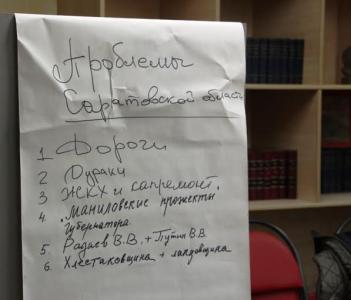 Проблемы
Саратовской области
1 Дороги
2 Дураки
3 ЖКХ и капремонт.
4. "Маниловские прожекты
губернатора
5 Радаев В.В. + Путин В.В.
6. Хлестаковщина +